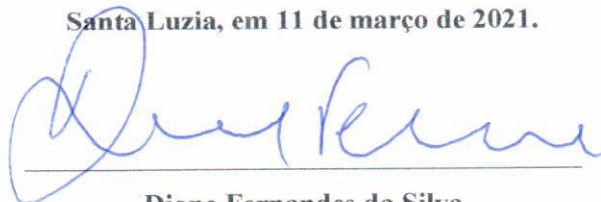 Santa Luzia, em 11 de março de 2021.
Diane Fernandes da Silva